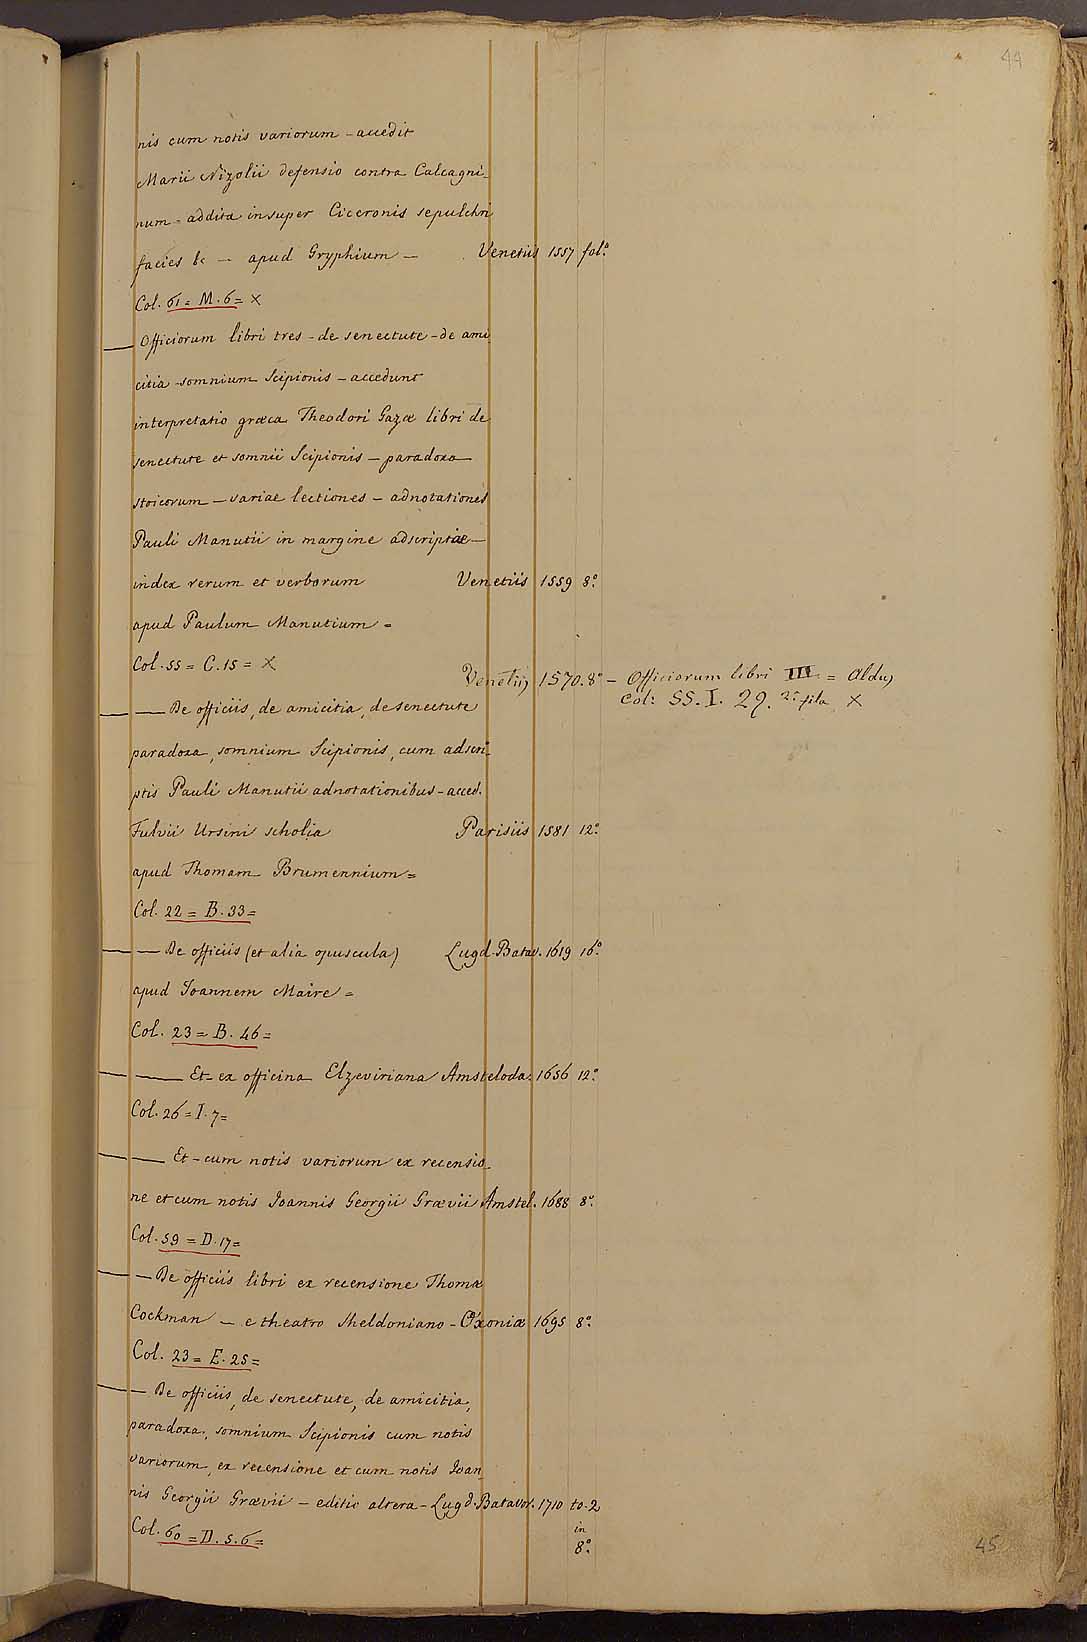 44
nis cum notis variorum - accedit
Marii Nizolii defensio contra Calcagni-
num - addita insuper Ciceronis sepulchri
facies &c - apud Gryphium - Venetiis 1557 fol.º
Col. 61 = M. 6 = X
— Officiorum libri tres - de senectute - de ami
citia - somnium Scipionis - accedunt
interpretatio græca Theodori Gazæ libri de
senectute et somnii Scipionis - paradoxa
stoicorum - variae lectiones - adnotationes
Pauli Manutii in margine adscriptae -
index rerum et verborum Venetiis 1559 8.º
apud Paulum Manutium =
Col. 55 = C. 15 = X
Venetijs 1570. 8º - Officiorum libri III = Aldus
Col: SS. I. 29. 2ª fila X
— — De officiis, de amicitia, de senectute
paradoxa, somnium Scipionis, cum adscri-
ptis Pauli Manutii adnotationibus - acced.
Fulvii Ursini scholia Parisiis 1581 12.º
apud Thomam Brumennium =
Col. 22 = B. 33 =
— — De officiis (et alia opuscula) Lugd. Batav. 1619 16.º
apud Joannem Maire =
Col. 23 = B. 46 =
— — Et - ex officina Elzeviriana Amsteloda. 1656 12.º
Col. 26 = I. 7 =
— — Et - cum notis variorum ex recensio-
ne et cum notis Joannis Georgii Grævii Amstel. 1688 8.º
Col. 59 = D. 17 =
— — De officiis libri ex recensione Thomæ
Cockman - e theatro Sheldoniano - Oxoniæ 1695 8.º
Col. 23 = E. 25 =
— — De officiis, de senectute, de amicitia,
paradoxa, somnium Scipionis cum notis
variorum, ex recensione et cum notis Joan
nis Georgii Grævii - editio altera - Lugd. Batavor. 1710 to. 2
in
8.º
Col. 60 = D. 5. 6 =
45